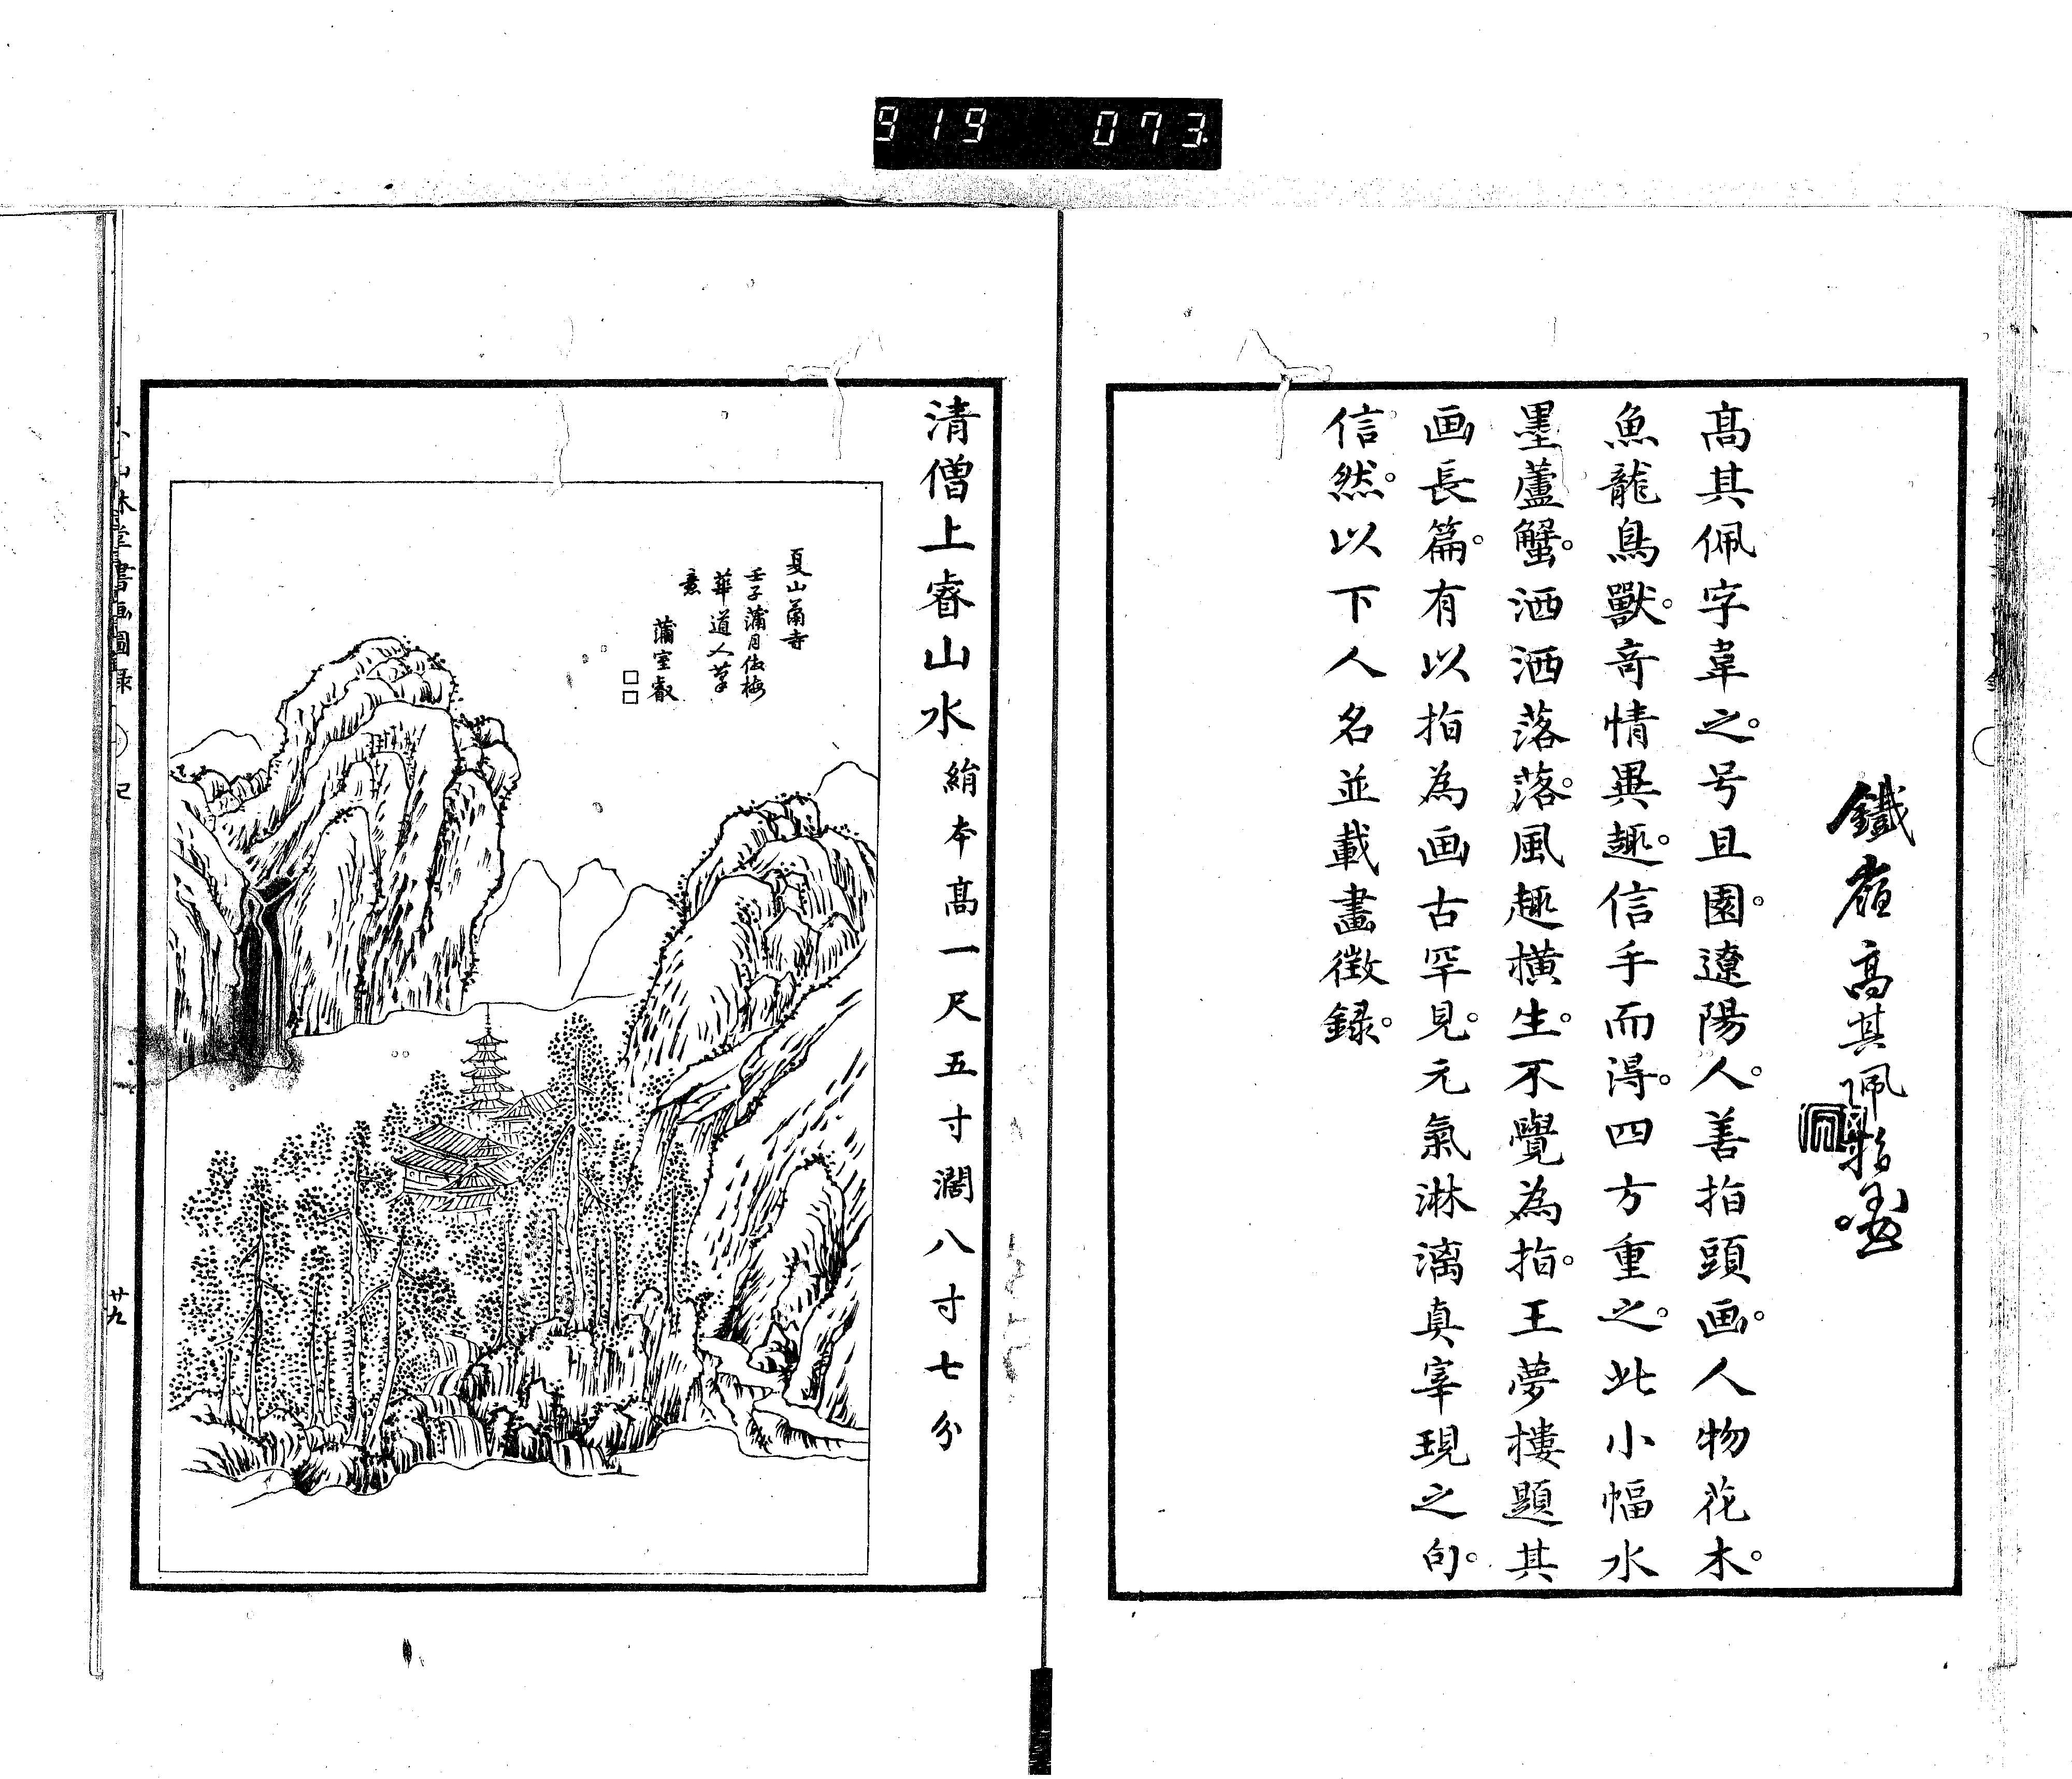 919 073
鐵嶺高其佩指画
髙其佩字韋之。号且園。遼陽人。善指頭画。人物花木。
魚龍鳥獸。竒情異趣。信手而得。四方重之。此小幅水
墨蘆蟹。洒洒落落。風趣橫生。不覺為指。王夢樓題其
画長篇。有以指為画古罕見。元氣淋漓真宰現之句。
信然。以下人名並載畫徵録。
清僧上睿山水 絹本高一尺五寸濶八寸七分
夏山蕭寺
壬子蒲月倣梅
華道人筆
意
蒲室叡
林堂書画圖録
廿九